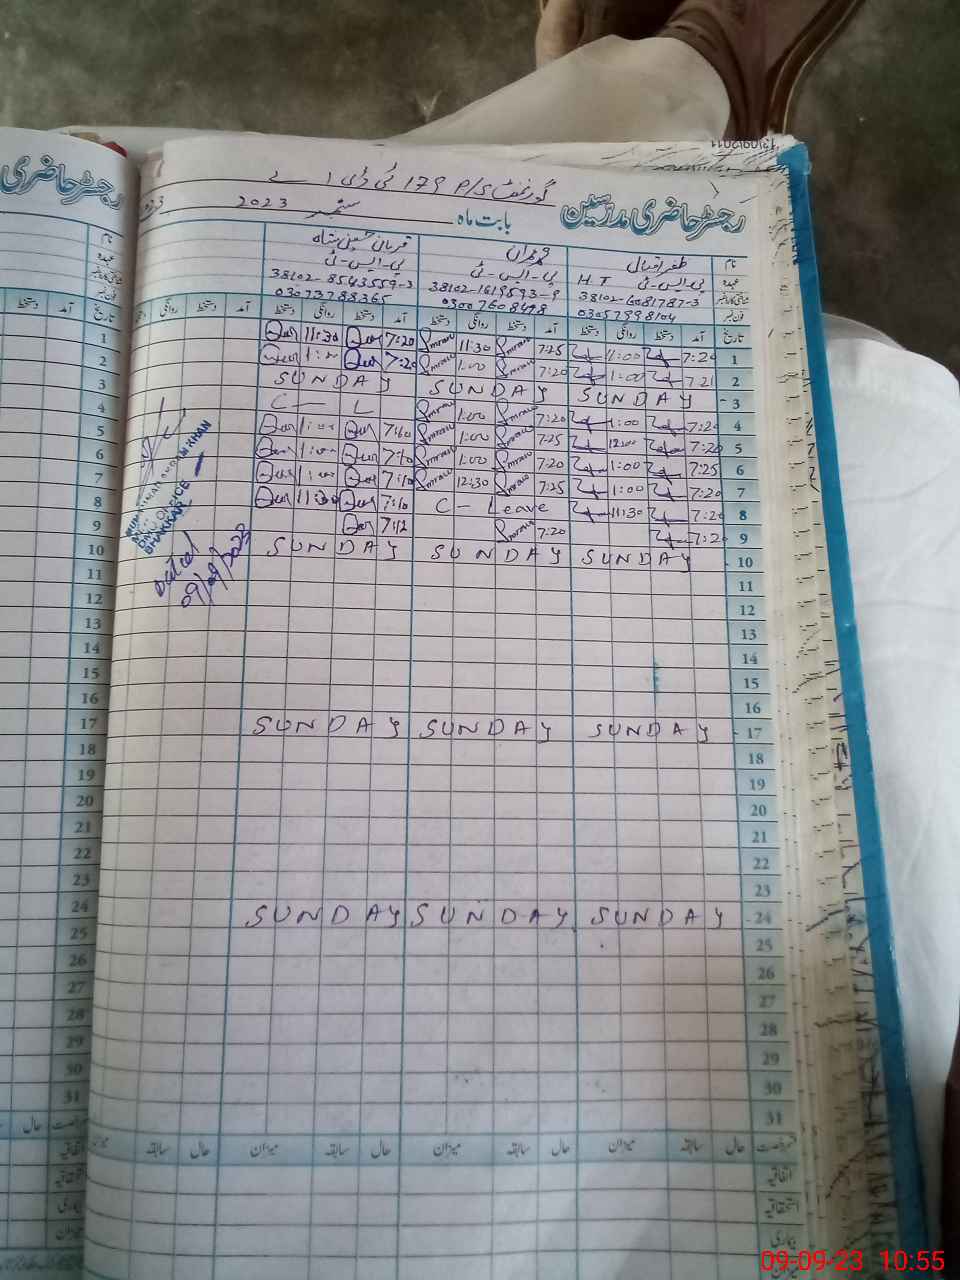 13/09/2011
رجسٹر حاضری
رجسٹر حاضری مدرسین
گورنمنٹ P/S 179 ٹی ڈی اے
بابت ماہ ستمبر 2023
نام ظفر اقبال محمد عمران قربان حسین شاہ
عہدہ پی۔ایس۔ٹی H T پی۔ایس۔ٹی پی۔ایس۔ٹی
38102-6081787-3 38102-1619593-9 38102-8543559-3
03057998104 03007608478 03073788365
تاریخ آمد دستخط روانگی دستخط آمد دستخط روانگی دستخط آمد دستخط روانگی دستخط
1 7:20 11:00 7:25 Imran 11:30 Imran 7:20 11:30
2 7:21 1:00 7:20 Imran 1:00 Imran 7:20 1:00
3 SUNDAY SUNDAY SUNDAY
4 7:20 1:00 7:20 Imran 1:00 Imran C — L
5 7:20 12:00 7:25 Imran 1:00 Imran 7:10 1:00
6 7:25 1:00 7:20 Imran 1:00 Imran 7:10 1:00
7 7:20 1:00 7:25 Imran 12:30 Imran 7:10 1:00
8 7:20 11:30 C - Leave 7:10 11:30
9 7:20 7:20 Imran 7:12
10 SUNDAY SUNDAY SUNDAY
11
12
13
14
15
16
17 SUNDAY SUNDAY SUNDAY
18
19
20
21
22
23
24 SUNDAY SUNDAY SUNDAY
25
26
27
28
29
30
31
رخصت حال سابقہ میزان حال سابقہ میزان حال سابقہ
اتفاقیہ
استحقاقیہ
بیماری
میزان
KHAN
OFFICE
BHAKKAR
Dated
09/09/2023
09-09-23 10:55